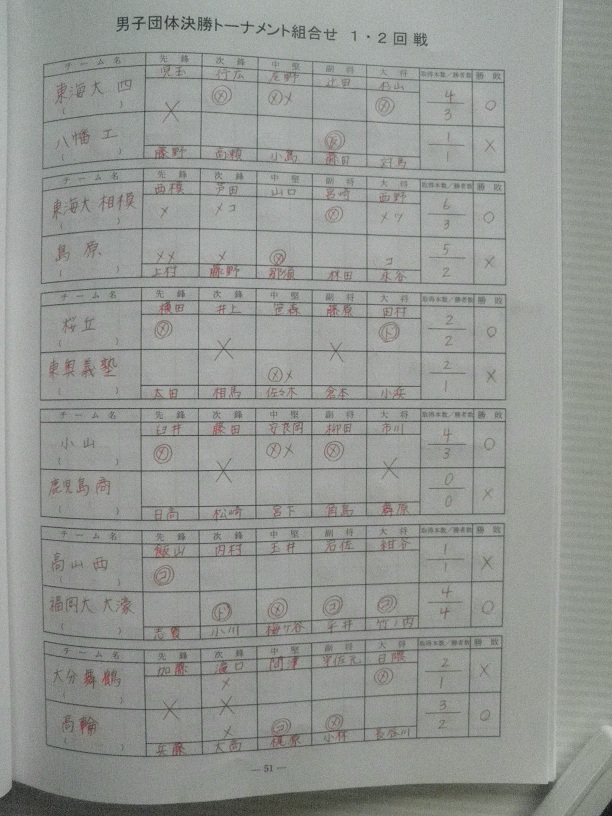 男子団体決勝トーナメント組合せ 1・2回戦
チーム名 先鋒 次鋒 中堅 副将 大将 取得本数/勝者数 勝敗
東海大四 児玉 行広 辻田 杉山
メ メ メ メ 4/3 ○
八幡工 反 1/1 ×
藤野 高瀬 小島 藤田
チーム名 先鋒 次鋒 中堅 副将 大将 取得本数/勝者数 勝敗
東海大相模 西模 芦田 山口 宮崎 西野
メ メコ メ メツ 6/3 ○
島原 メメ メ メ コ 5/2 ×
上村 藤野 那須 林田 永谷
チーム名 先鋒 次鋒 中堅 副将 大将 取得本数/勝者数 勝敗
桜丘 横田 井上 笹森 藤原 田村
メ ド 2/2 ○
東奥義塾 メメ 2/1 ×
太田 相馬 佐々木 倉本 小浜
チーム名 先鋒 次鋒 中堅 副将 大将 取得本数/勝者数 勝敗
小山 臼井 藤田 安良岡 柳田 市川
メ メメ メ 4/3 ○
鹿児島商 0/0 ×
日高 松崎 宮下 有島
チーム名 先鋒 次鋒 中堅 副将 大将 取得本数/勝者数 勝敗
高山西 飯山 内村 玉井 石佐 紺谷
コ 1/1 ×
福岡大大濠 ド メ コ コ 4/4 ○
志賀 小川 梅ヶ谷 平井 竹ノ内
チーム名 先鋒 次鋒 中堅 副将 大将 取得本数/勝者数 勝敗
大分舞鶴 加藤 溝口 日隈
メ メ 2/1 ×
高輪 メ コ メ 3/2 ○
兵藤 大高 梶原 小林 長谷川
— 51 —